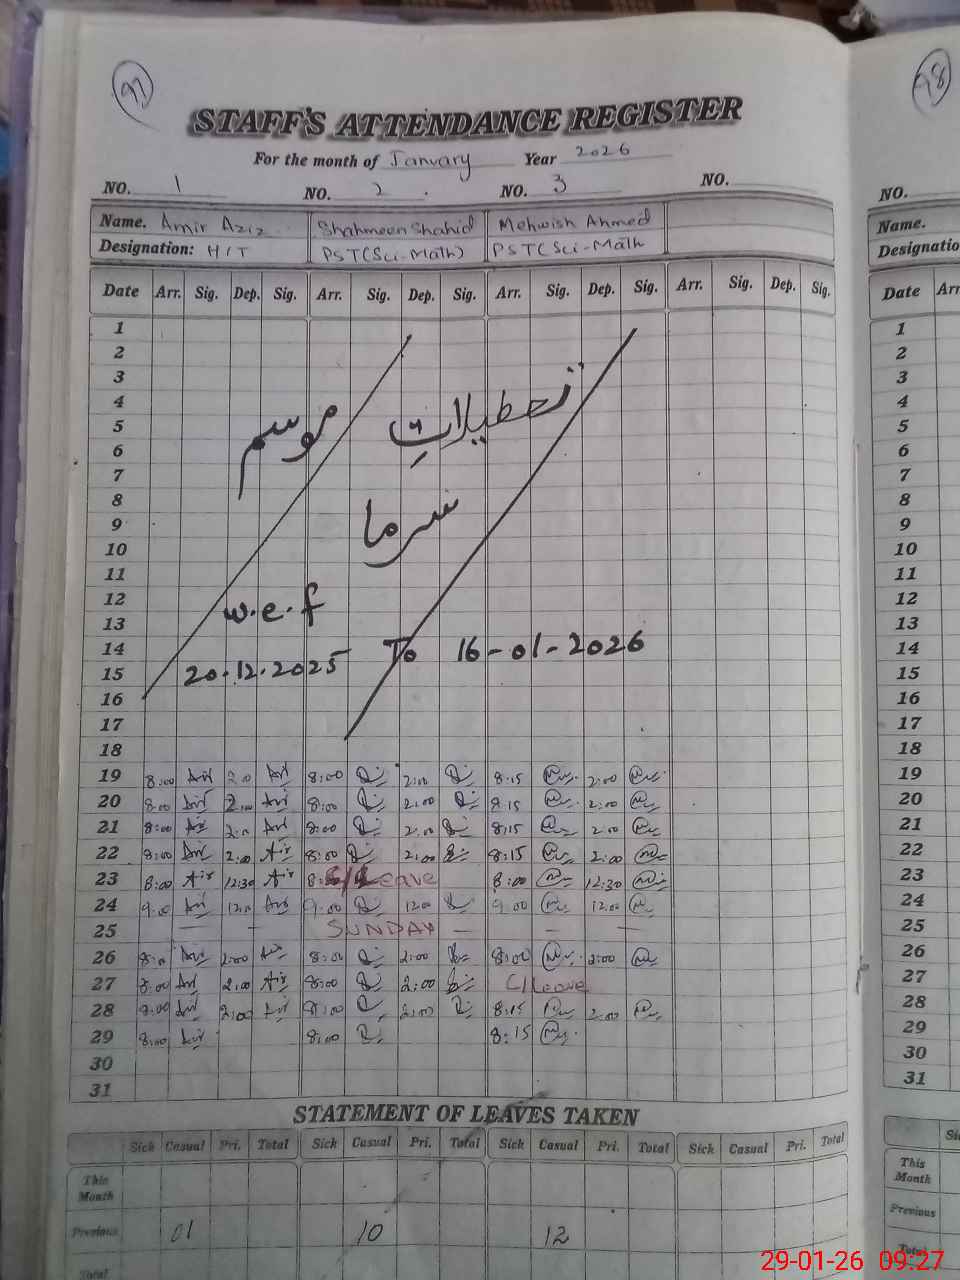 97
98
STAFF'S ATTENDANCE REGISTER
For the month of January Year 2026
NO. 1 NO. 2 NO. 3 NO.
NO.
Name. Amir Aziz Shahmeen Shahid Mehwish Ahmed
Name.
Designation: H/T PST(Sci-Math) PST(Sci-Math
Designatio
Date Arr. Sig. Dep. Sig. Arr. Sig. Dep. Sig. Arr. Sig. Dep. Sig. Arr. Sig. Dep. Sig.
Date Arr
1
2
3
4
5
6
7
8
9
10
11
12
13
14
15
16
17
18
تعطیلاتِ موسم
سرما
w.e.f
20.12.2025 To 16-01-2026
19 8:00 2:00 8:00 2:00 8:15 2:00
20 8:00 2:00 8:00 2:00 8:15 2:00
21 8:00 2:00 8:00 2:00 8:15 2:00
22 8:00 2:00 8:00 2:00 8:15 2:00
23 8:00 12:30 C/Leave 8:00 12:30
24 9:00 12:00 9:00 12:00 9:00 12:00
25 — — SUNDAY — — —
26 8:00 2:00 8:00 2:00 8:00 2:00
27 8:00 2:00 8:00 2:00 C/Leave
28 8:00 2:00 8:00 2:00 8:15 2:00
29 8:00 8:00 8:15
30
31
1
2
3
4
5
6
7
8
9
10
11
12
13
14
15
16
17
18
19
20
21
22
23
24
25
26
27
28
29
30
31
STATEMENT OF LEAVES TAKEN
Sick Casual Pri. Total Sick Casual Pri. Total Sick Casual Pri. Total Sick Casual Pri. Total
Si
This Month
This Month
Previous 01 10 12
Previous
Total
Total
29-01-26 09:27